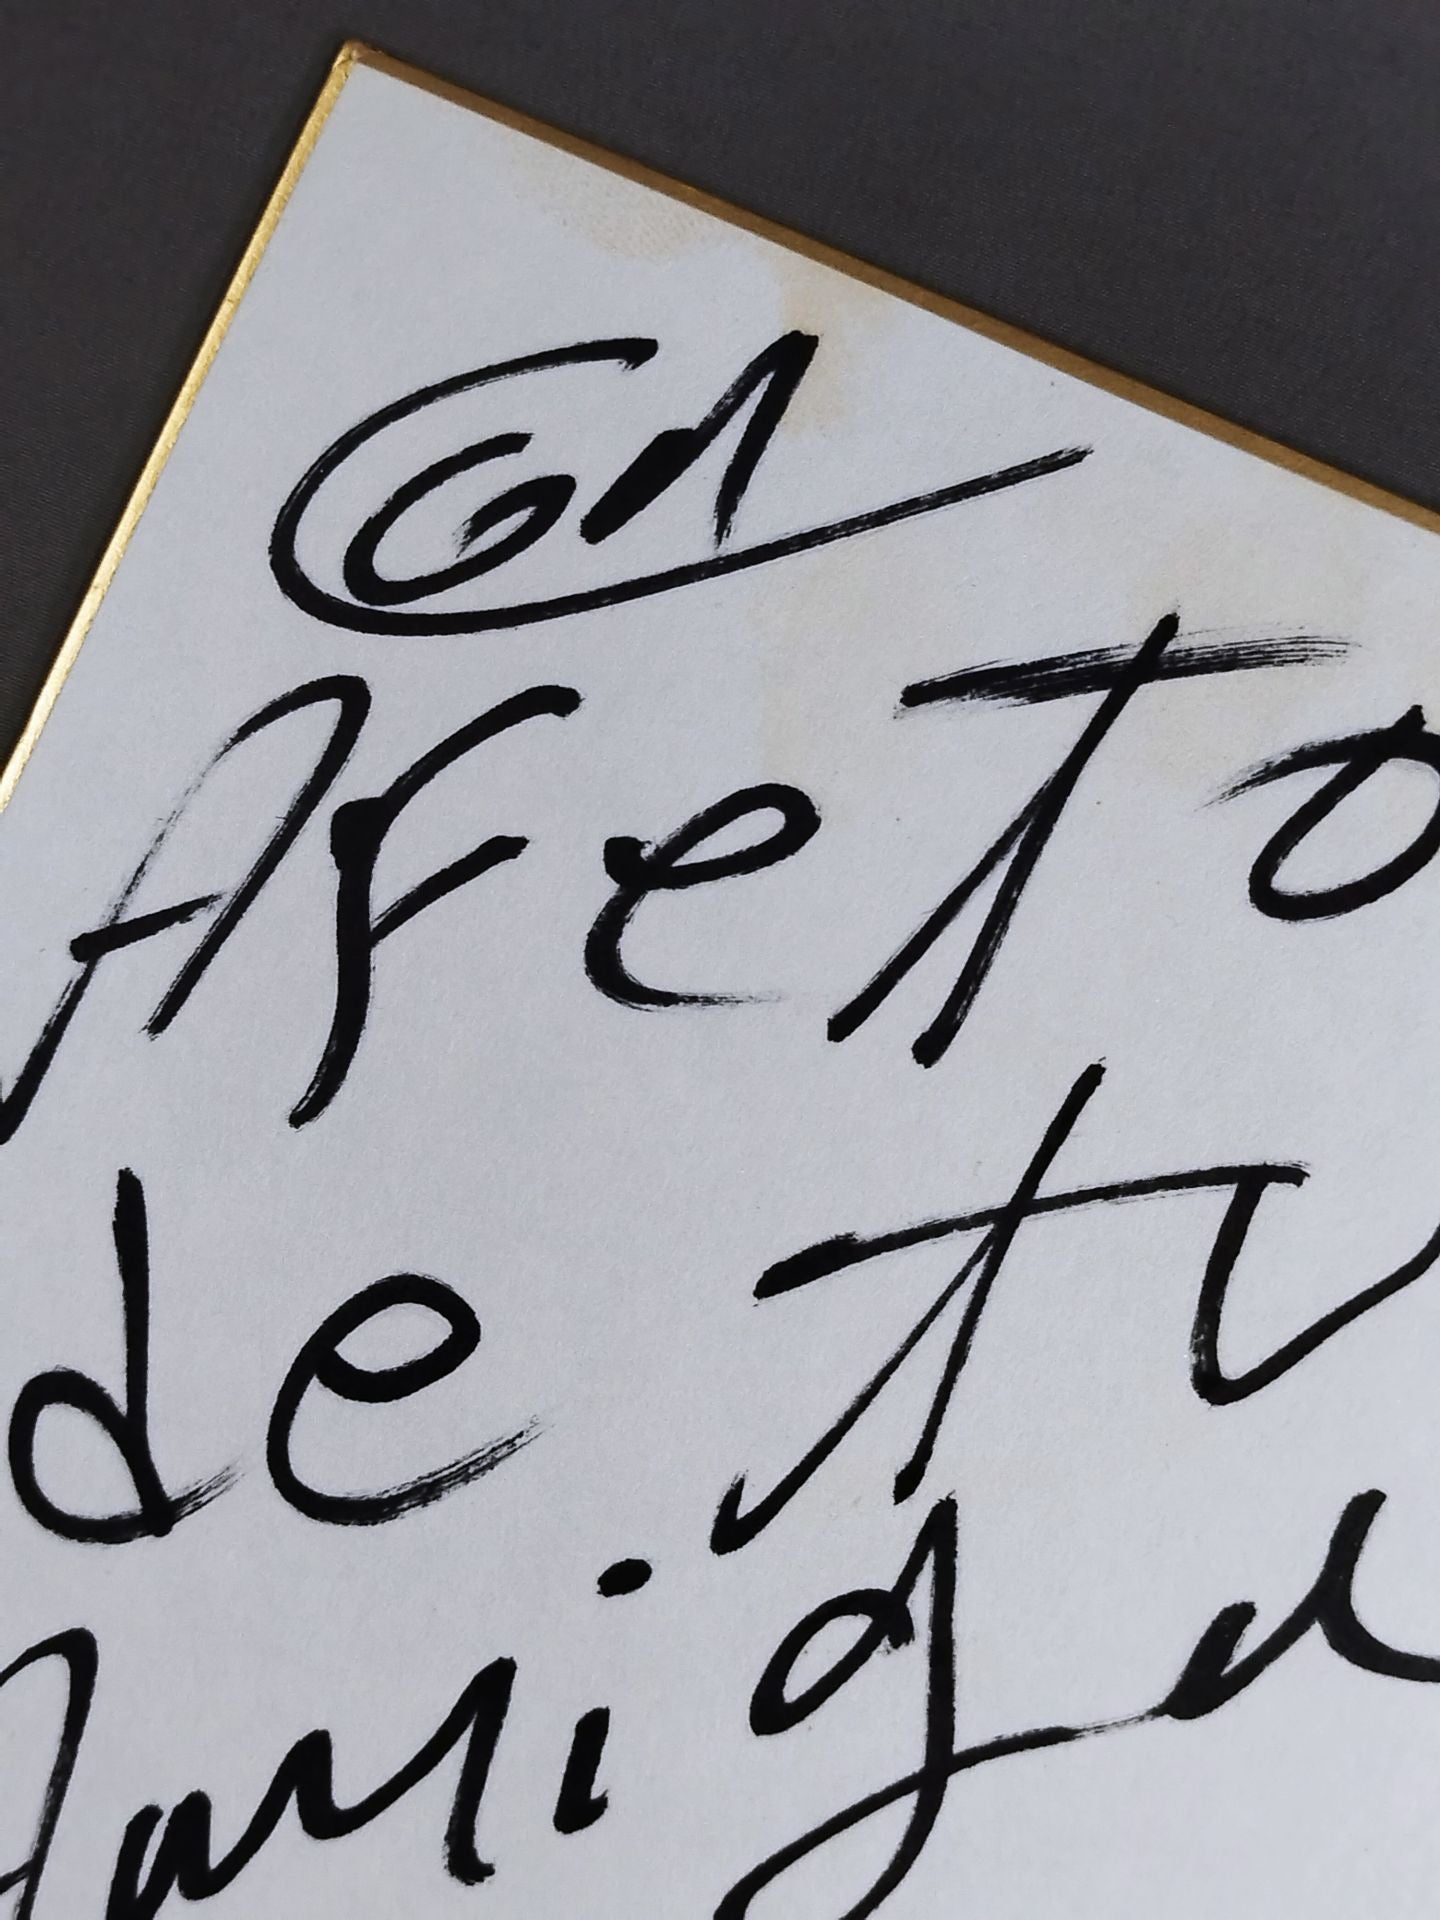 Con
Afeto
de tu
Amiga